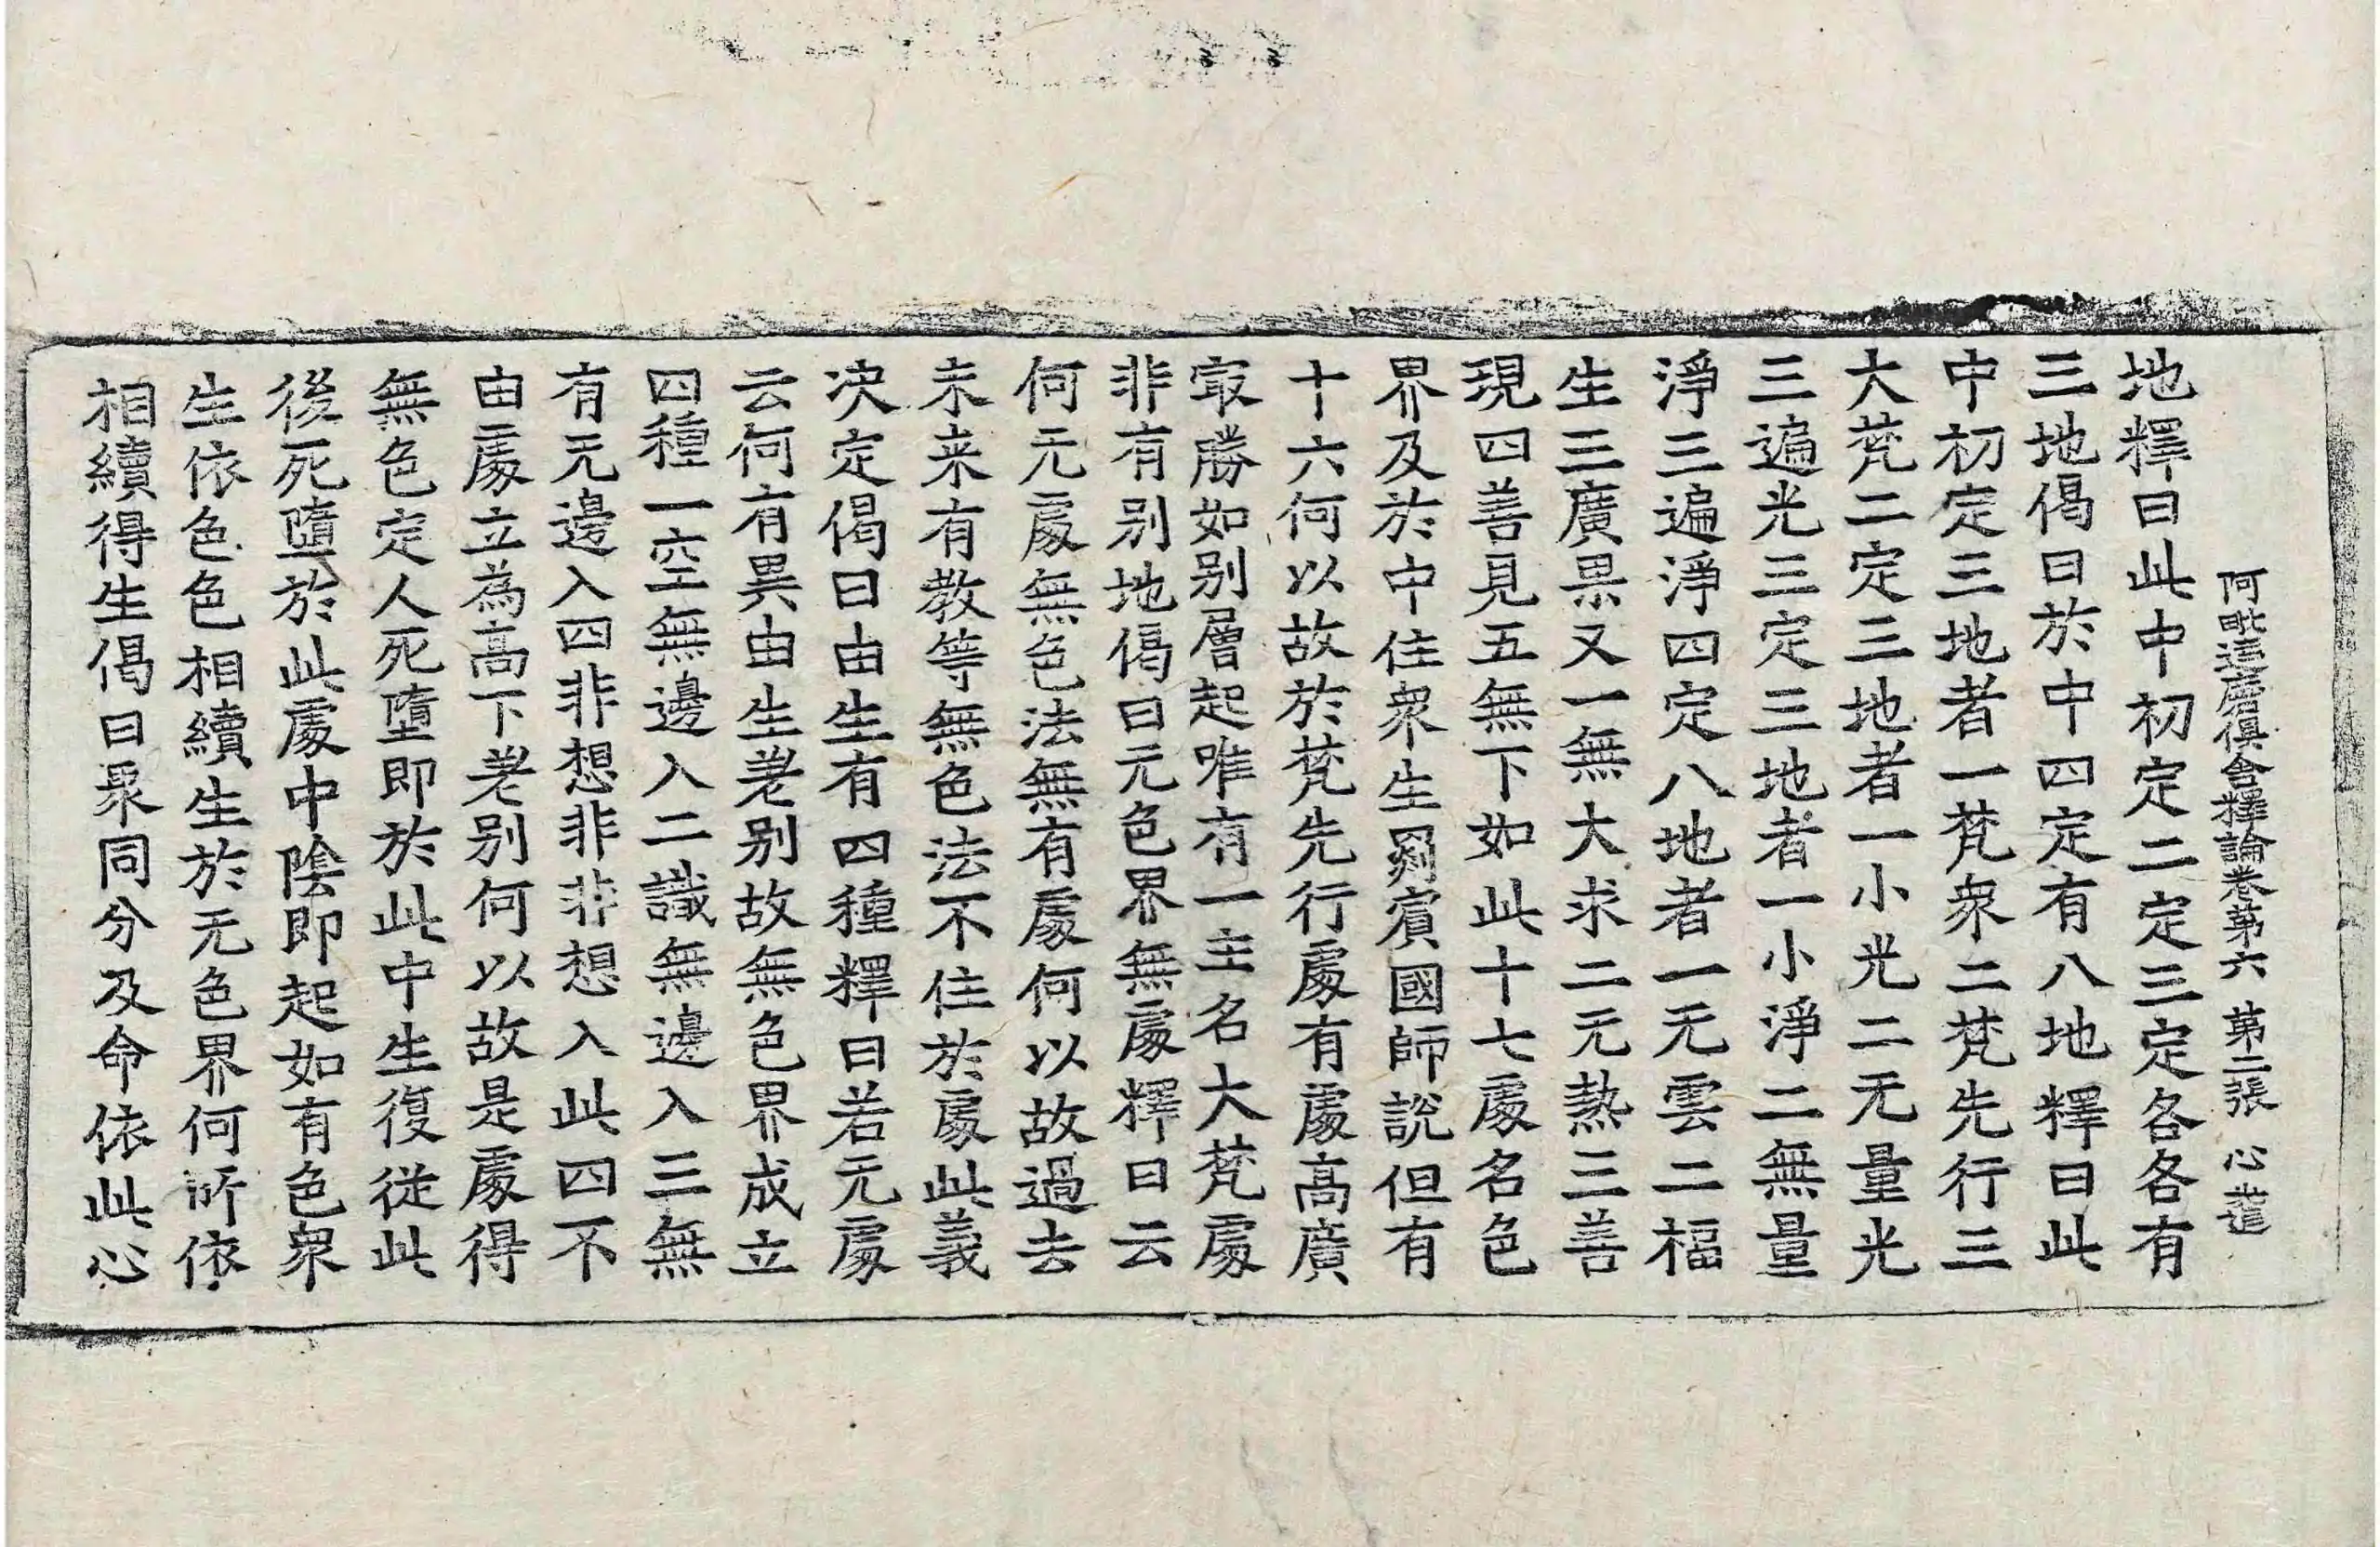 阿毗達磨俱舍釋論卷第六 第二張 心
地釋曰此中初定二定三定各各有
三地偈曰於中四定有八地釋曰此
中初定三地者一梵衆二梵先行三
大梵二定三地者一小光二无量光
三遍光三定三地者一小淨二無量
淨三遍淨四定八地者一无雲二福
生三廣果又一無大求二无熱三善
現四善見五無下如此十七處名色
界及於中住衆生罽賓國師說但有
十六何以故於梵先行處有處高廣
冣勝如别層起唯有一主名大梵處
非有别地偈曰无色界無處釋曰云
何无處無色法無有處何以故過去
未来有教等無色法不住於處此義
决定偈曰由生有四種釋曰若无處
云何有異由生差别故無色界成立
四種一空無邊入二識無邊入三無
有无邊入四非想非非想入此四不
由處立為高下差别何以故是處得
無色定人死墮即於此中生復從此
後死墮於此處中陰即起如有色衆
生依色色相續生於无色界何所依
相續得生偈曰衆同分及命依此心